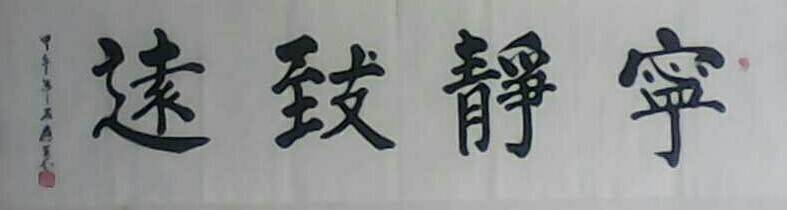 寧靜致遠
甲午年